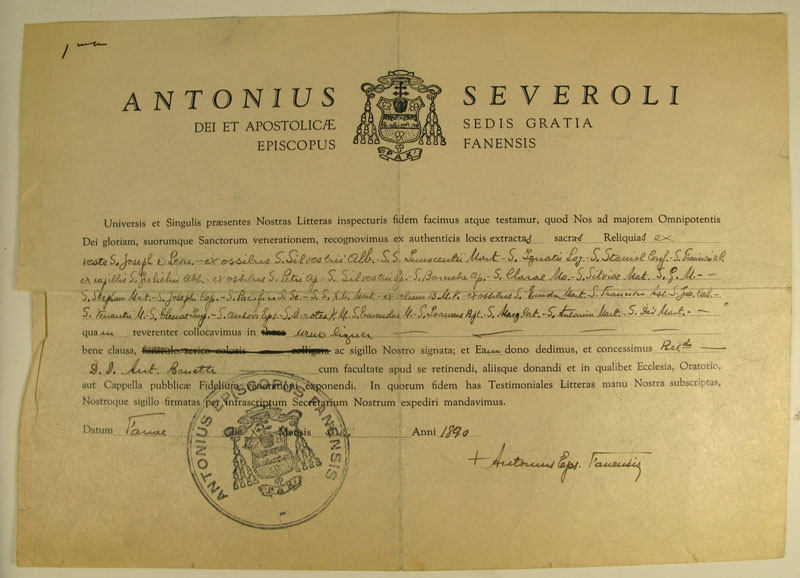 ANTONIUS SEVEROLI
DEI ET APOSTOLICÆ SEDIS GRATIA
EPISCOPUS FANENSIS
PAX
Universis et Singulis præsentes Nostras Litteras inspecturis fidem facimus atque testamur, quod Nos ad majorem Omnipotentis
Dei gloriam, suorumque Sanctorum venerationem, recognovimus ex authenticis locis extractas sacras Reliquias ex
veste S. Joseph e Leon. - ex ossibus S. Silvestrii Abb. S. S. Innocentii Mart - S. Ignatii Loj. - S. Stanisl Conf. - S.
ex capillis S. Guilielmi Abb. - ex ossibus S. Petri Ap - S. Silvestri - S. Barnaba Ap. - S. Clarae - S. Silvios Mat. S. G. M. -
S. Stephani Mart. - S. Joseph - S. Pacifici - S. S. Mart - ex ossibus S. Emidii Mart. S. Francisci Ass - S. Jos. Cal. -
S. Venantii M. - S. - S. Ausonii Eps. - S. Dorotea V. M. S. M. - S. Joannis Bpt. - S. Marg. Cat. - S. Antonini Mart. - S. Mart. -
quas reverenter collocavimus in urna lignea
bene clausa, funiculo serico coloris colligata ac sigillo Nostro signata; et Eam dono dedimus, et concessimus Rev.do
D. D. Ant. Benetti cum facultate apud se retinendi, aliisque donandi et in qualibet Ecclesia, Oratorio,
aut Cappella publicæ Fidelium venerationi exponendi. In quorum fidem has Testimoniales Litteras manu Nostra subscriptas,
Nostroque sigillo firmatas per infrascriptum Secretarium Nostrum expediri mandavimus.
Datum Fanae die Mensis Anni 1890
+ Antonius Eps. Fanensis
ANTONIUS EPISCOPUS FANENSIS
PAX